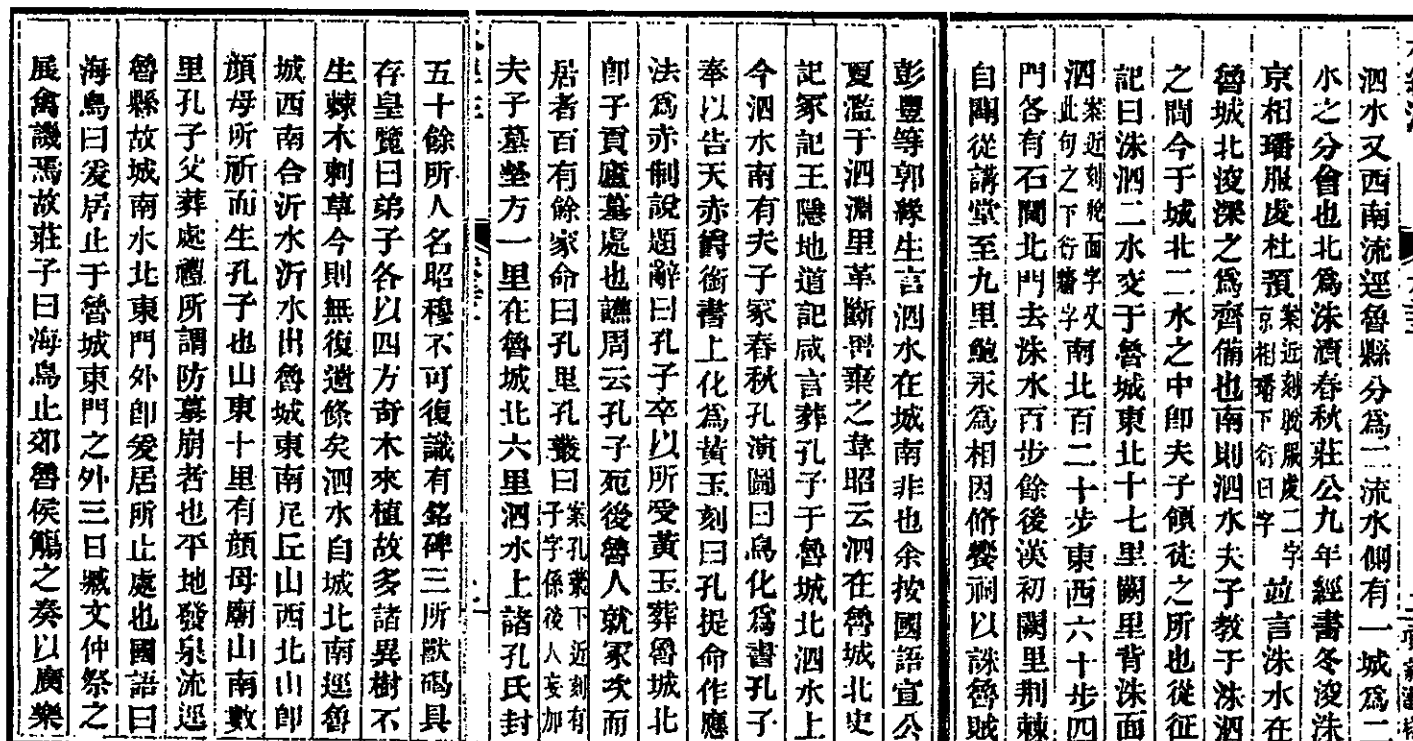 泗水又西南流逕魯縣分爲二流水側有一城爲二
水之分會也北爲洙瀆春秋莊公九年經書冬浚洙
京相璠服虔杜預案近刻脫服虔二字京相璠下衍曰字並言洙水在
魯城北浚深之爲齊備也南則泗水夫子教于洙泗
之間今于城北二水之中卽夫子領徒之所也從征
記曰洙泗二水交于魯城東北十七里闕里背洙面
泗案近刻脫面字又此句之下衍牆字南北百二十步東西六十步四
門各有石閫北門去洙水百步餘後漢初闕里荆棘
自闢從講堂至九里鮑永爲相因脩饗祠以誅魯賊
彭豐等郭緣生言泗水在城南非也余按國語宣公
夏濫于泗淵里革斷罟棄之韋昭云泗在魯城北史
記冢記王隱地道記咸言葬孔子于魯城北泗水上
今泗水南有夫子冢春秋孔演圖曰鳥化爲書孔子
奉以告天赤爵銜書上化爲黃玉刻曰孔提命作應
法爲赤制說題辭曰孔子卒以所受黃玉葬魯城北
卽子貢廬墓處也譙周云孔子死後魯人就冢次而
居者百有餘家命曰孔里孔叢曰案孔叢下近刻有子字係後人妄加
夫子墓塋方一里在魯城北六里泗水上諸孔氏封
五十餘所人名昭穆不可復識有銘碑三所獸碣具
存皇覽曰弟子各以四方奇木來植故多諸異樹不
生棘木刺草今則無復遺條矣泗水自城北南逕魯
城西南合沂水沂水出魯城東南尼丘山西北山卽
顏母所祈而生孔子也山東十里有顏母廟山南數
里孔子父葬處禮所謂防墓崩者也平地發泉流逕
魯縣故城南水北東門外卽爰居所止處也國語曰
海鳥曰爰居止于魯城東門之外三日臧文仲祭之
展禽譏焉故莊子曰海鳥止郊魯侯觴之奏以廣樂